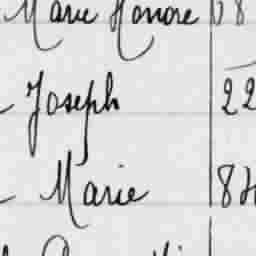 Marie Honore 68
Joseph 22
Marie 84